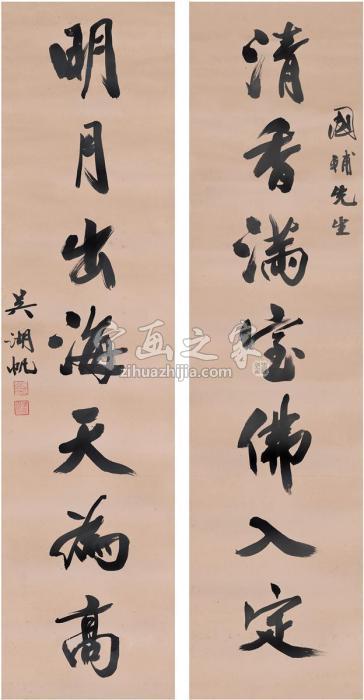 國輔先生
清香滿室佛入定
明月出海天為高
吳湖帆
字画之家
zihuazhijia.com